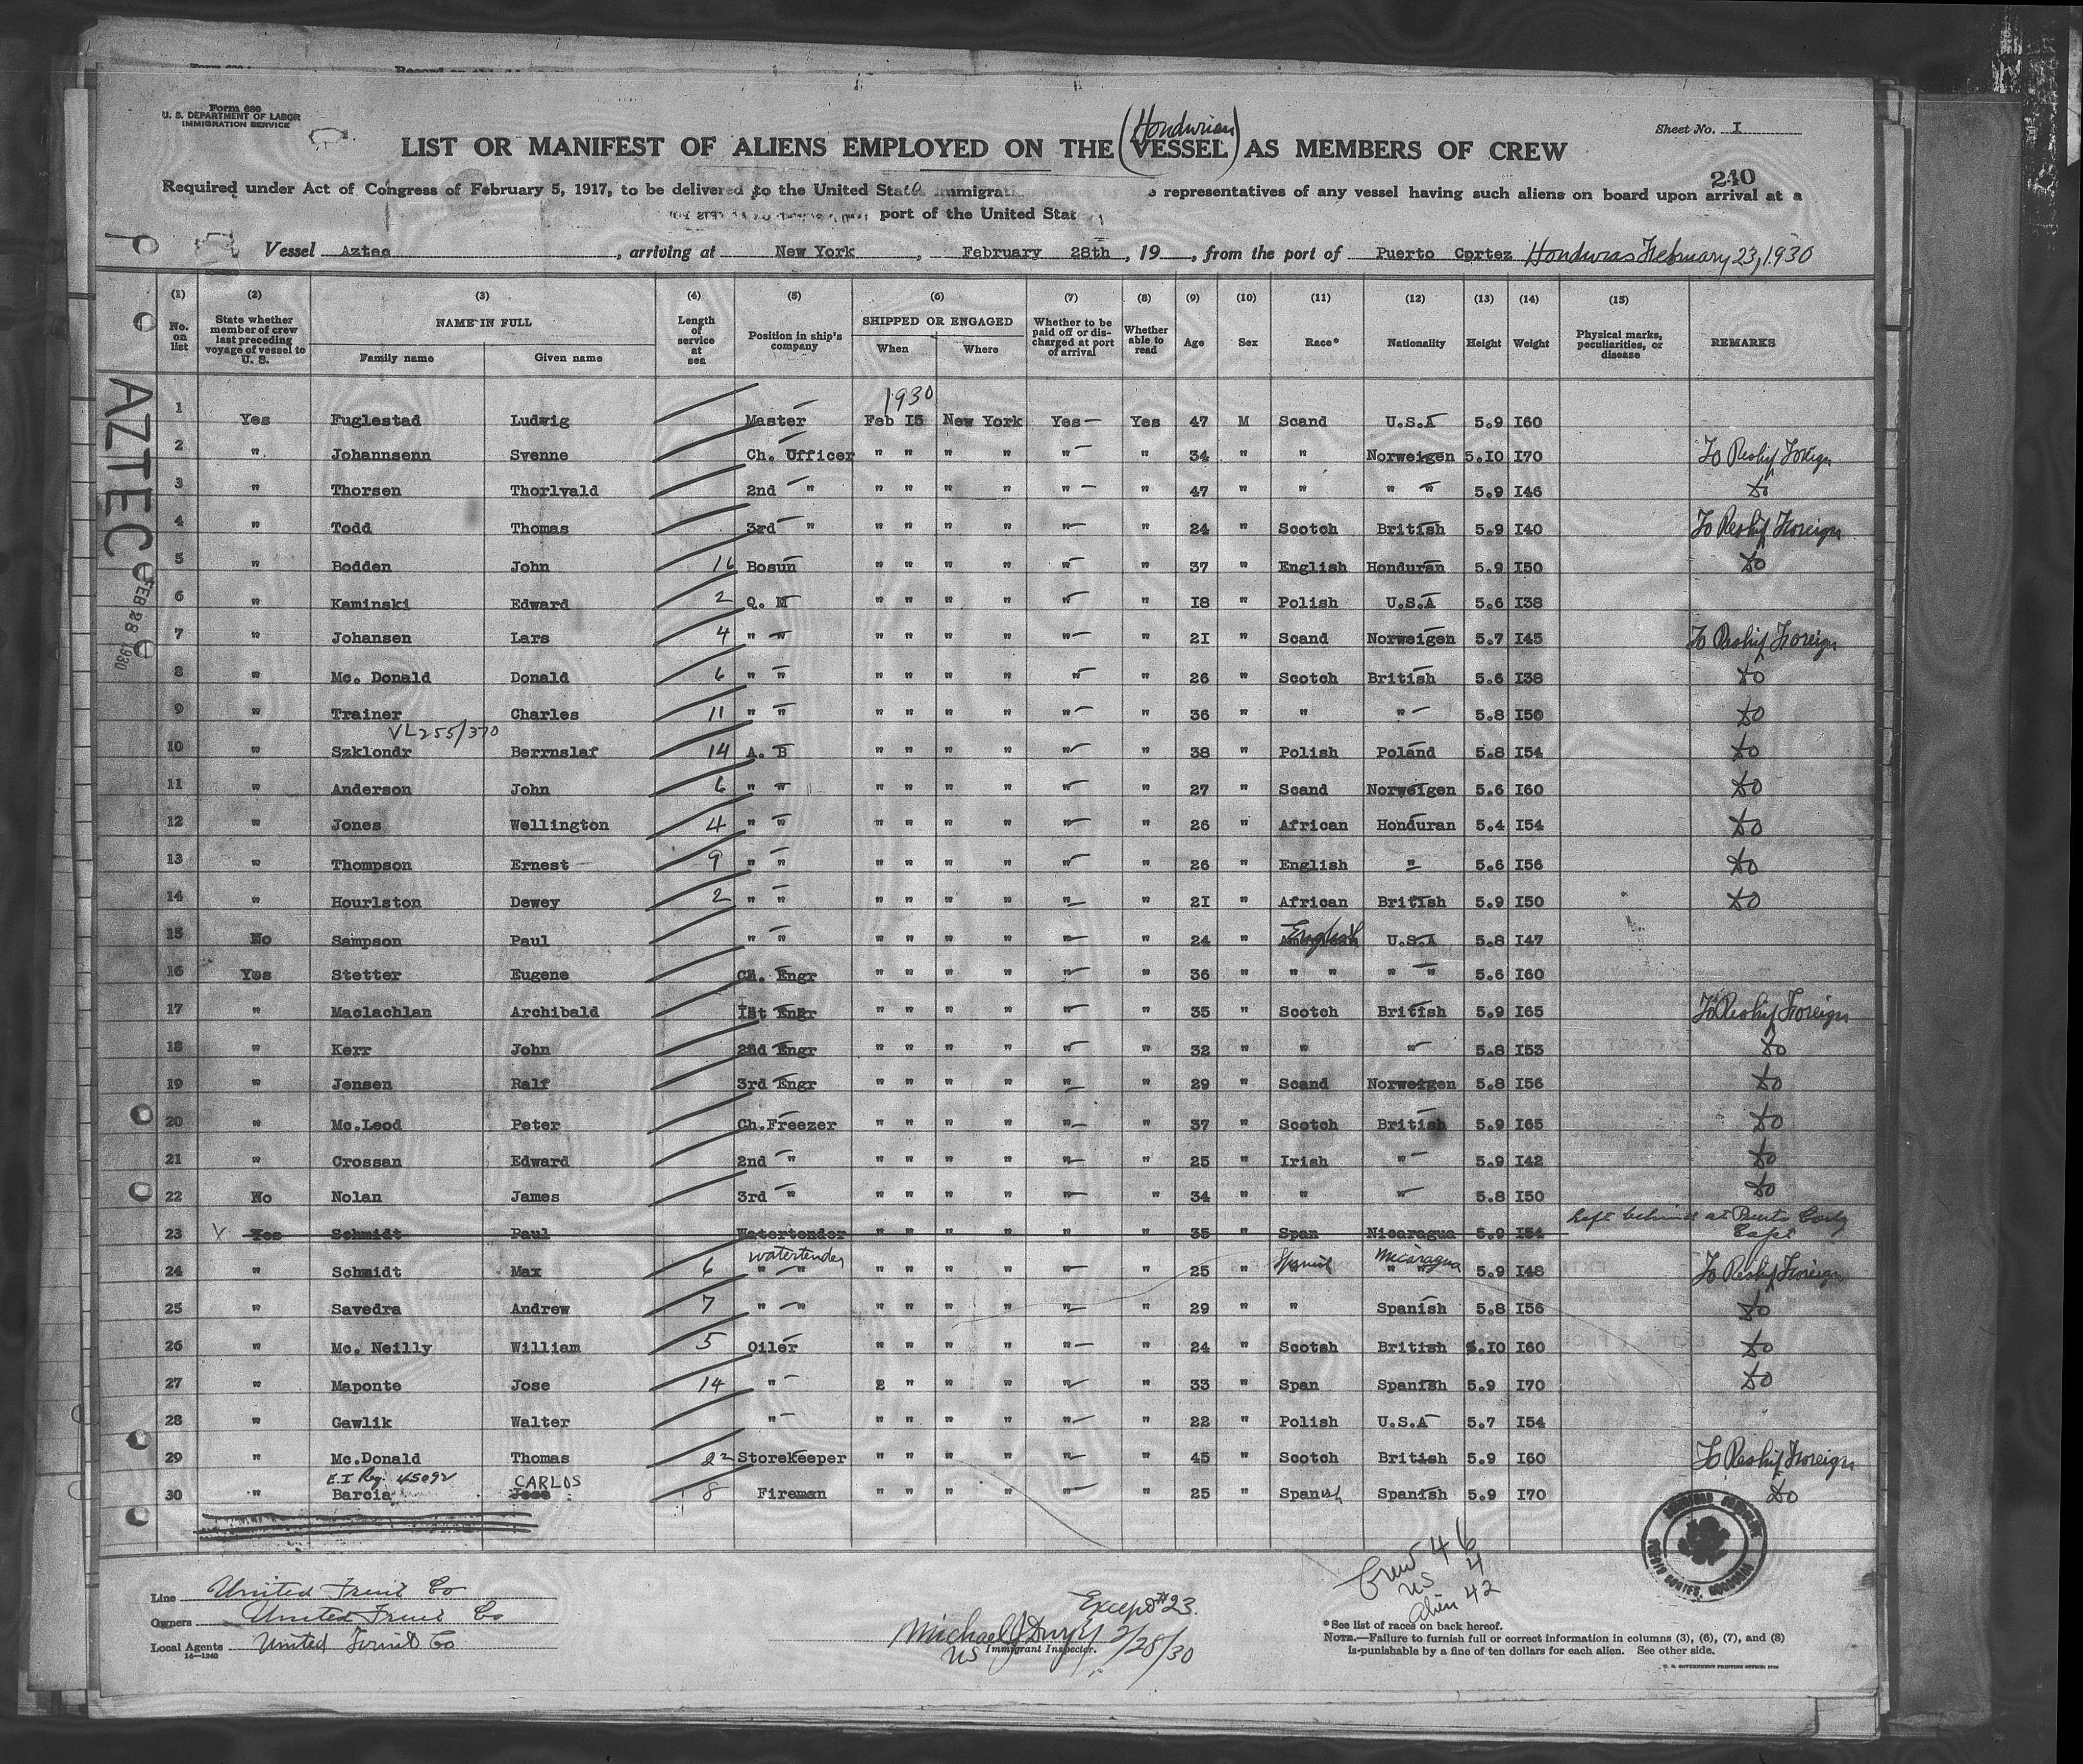 Form 680
U. S. DEPARTMENT OF LABOR
IMMIGRATION SERVICE
Sheet No. I
LIST OR MANIFEST OF ALIENS EMPLOYED ON THE (Honduran VESSEL) AS MEMBERS OF CREW
240
Required under Act of Congress of February 5, 1917, to be delivered to the United States immigrat representatives of any vessel having such aliens on board upon arrival at a
port of the United Stat
Vessel Aztec, arriving at New York, February 28th, 19, from the port of Puerto Cortez Honduras February 23, 1930
AZTEC
FEB 28 1930
(1) (2) (3) (4) (5) (6) (7) (8) (9) (10) (11) (12) (13) (14) (15)
No. on list State whether member of crew last preceding voyage of vessel to U. S. NAME IN FULL Family name Given name Length of service at sea Position in ship's company SHIPPED OR ENGAGED When Where Whether to be paid off or discharged at port of arrival Whether able to read Age Sex Race* Nationality Height Weight Physical marks, peculiarities, or disease REMARKS
1930
1 Yes Fuglestad Ludwig Master Feb I5 New York Yes Yes 47 M Scand U.S.A 5.9 I60
2 " Johannsenn Svenne Ch. Officer " " " " " " 34 " " Norweigen 5.I0 I70 To Reship Foreign
3 " Thorsen Thorlvald 2nd " " " " " " " 47 " " " " 5.9 I46 do
4 " Todd Thomas 3rd " " " " " " " 24 " Scotch British 5.9 I40 To Reship Foreign
5 " Bodden John 16 Bosun " " " " " " 37 " English Honduran 5.9 I50 do
6 " Kaminski Edward 2 Q. M " " " " " " I8 " Polish U.S.A 5.6 I38
7 " Johansen Lars 4 " " " " " " " " 2I " Scand Norweigen 5.7 I45 To Reship Foreign
8 " Mc. Donald Donald 6 " " " " " " " " 26 " Scotch British 5.6 I38 do
9 " Trainer Charles 11 " " " " " " " " 36 " " " 5.8 I50 do
VL255/370
10 " Szklondr Berrnslaf 14 A. B " " " " " " 38 " Polish Poland 5.8 I54 do
11 " Anderson John 6 " " " " " " " " 27 " Scand Norweigen 5.6 I60 do
12 " Jones Wellington 4 " " " " " " " " 26 " African Honduran 5.4 I54 do
13 " Thompson Ernest 9 " " " " " " " " 26 " English " 5.6 I56 do
14 " Hourlston Dewey 2 " " " " " " " " 2I " African British 5.9 I50 do
15 No Sampson Paul " " " " " " " " 24 " English U.S.A 5.8 I47
16 Yes Stetter Eugene Ch. Engr " " " " " " 36 " " " " " 5.6 I60
17 " Maclachlan Archibald Ist Engr " " " " " " 35 " Scotch British 5.9 I65 To Reship Foreign
18 " Kerr John 2nd Engr " " " " " " 32 " " " 5.8 I53 do
19 " Jensen Ralf 3rd Engr " " " " " " 29 " Scand Norweigen 5.8 I56 do
20 " Mc.Leod Peter Ch.Freezer " " " " " " 37 " Scotch British 5.9 I65 do
21 " Crossan Edward 2nd " " " " " " " 25 " Irish " 5.9 I42 do
22 No Nolan James 3rd " " " " " " " 34 " " " 5.8 I50 do
23 V Yes Schmidt Paul Watertender " " " " " " 35 " Span Nicaragua 5.9 I54 Left behind at Puerto Cortez
24 " Schmidt Max 6 watertender " " " " " " " " 25 " Spanish Nicaragua 5.9 I48 To Reship Foreign
25 " Savedra Andrew 7 " " " " " " " " 29 " " Spanish 5.8 I56 do
26 " Mc. Neilly William 5 Oiler " " " " " " 24 " Scotsh British 5.I0 I60 do
27 " Maponte Jose 14 " 2 " " " " " 33 " Span Spanish 5.9 I70 do
28 " Gawlik Walter " " " " " " " 22 " Polish U.S.A 5.7 I54
29 " Mc.Donald Thomas 22 Storekeeper " " " " " " 45 " Scotch British 5.9 I60 To Reship Foreign
E.I Reg. 45092 CARLOS
30 " Barcia Jose 8 Fireman " " " " " " 25 " Spanish Spanish 5.9 I70 do
Crew 46
US 4
Alien 42
Line United Fruit Co
Owners United Fruit Co
Local Agents United Fruit Co
16—1240
Except #23.
Michael J Dwyer 2/28/30
US Immigrant Inspector.
*See list of races on back hereof.
NOTE.—Failure to furnish full or correct information in columns (3), (6), (7), and (8)
is punishable by a fine of ten dollars for each alien. See other side.